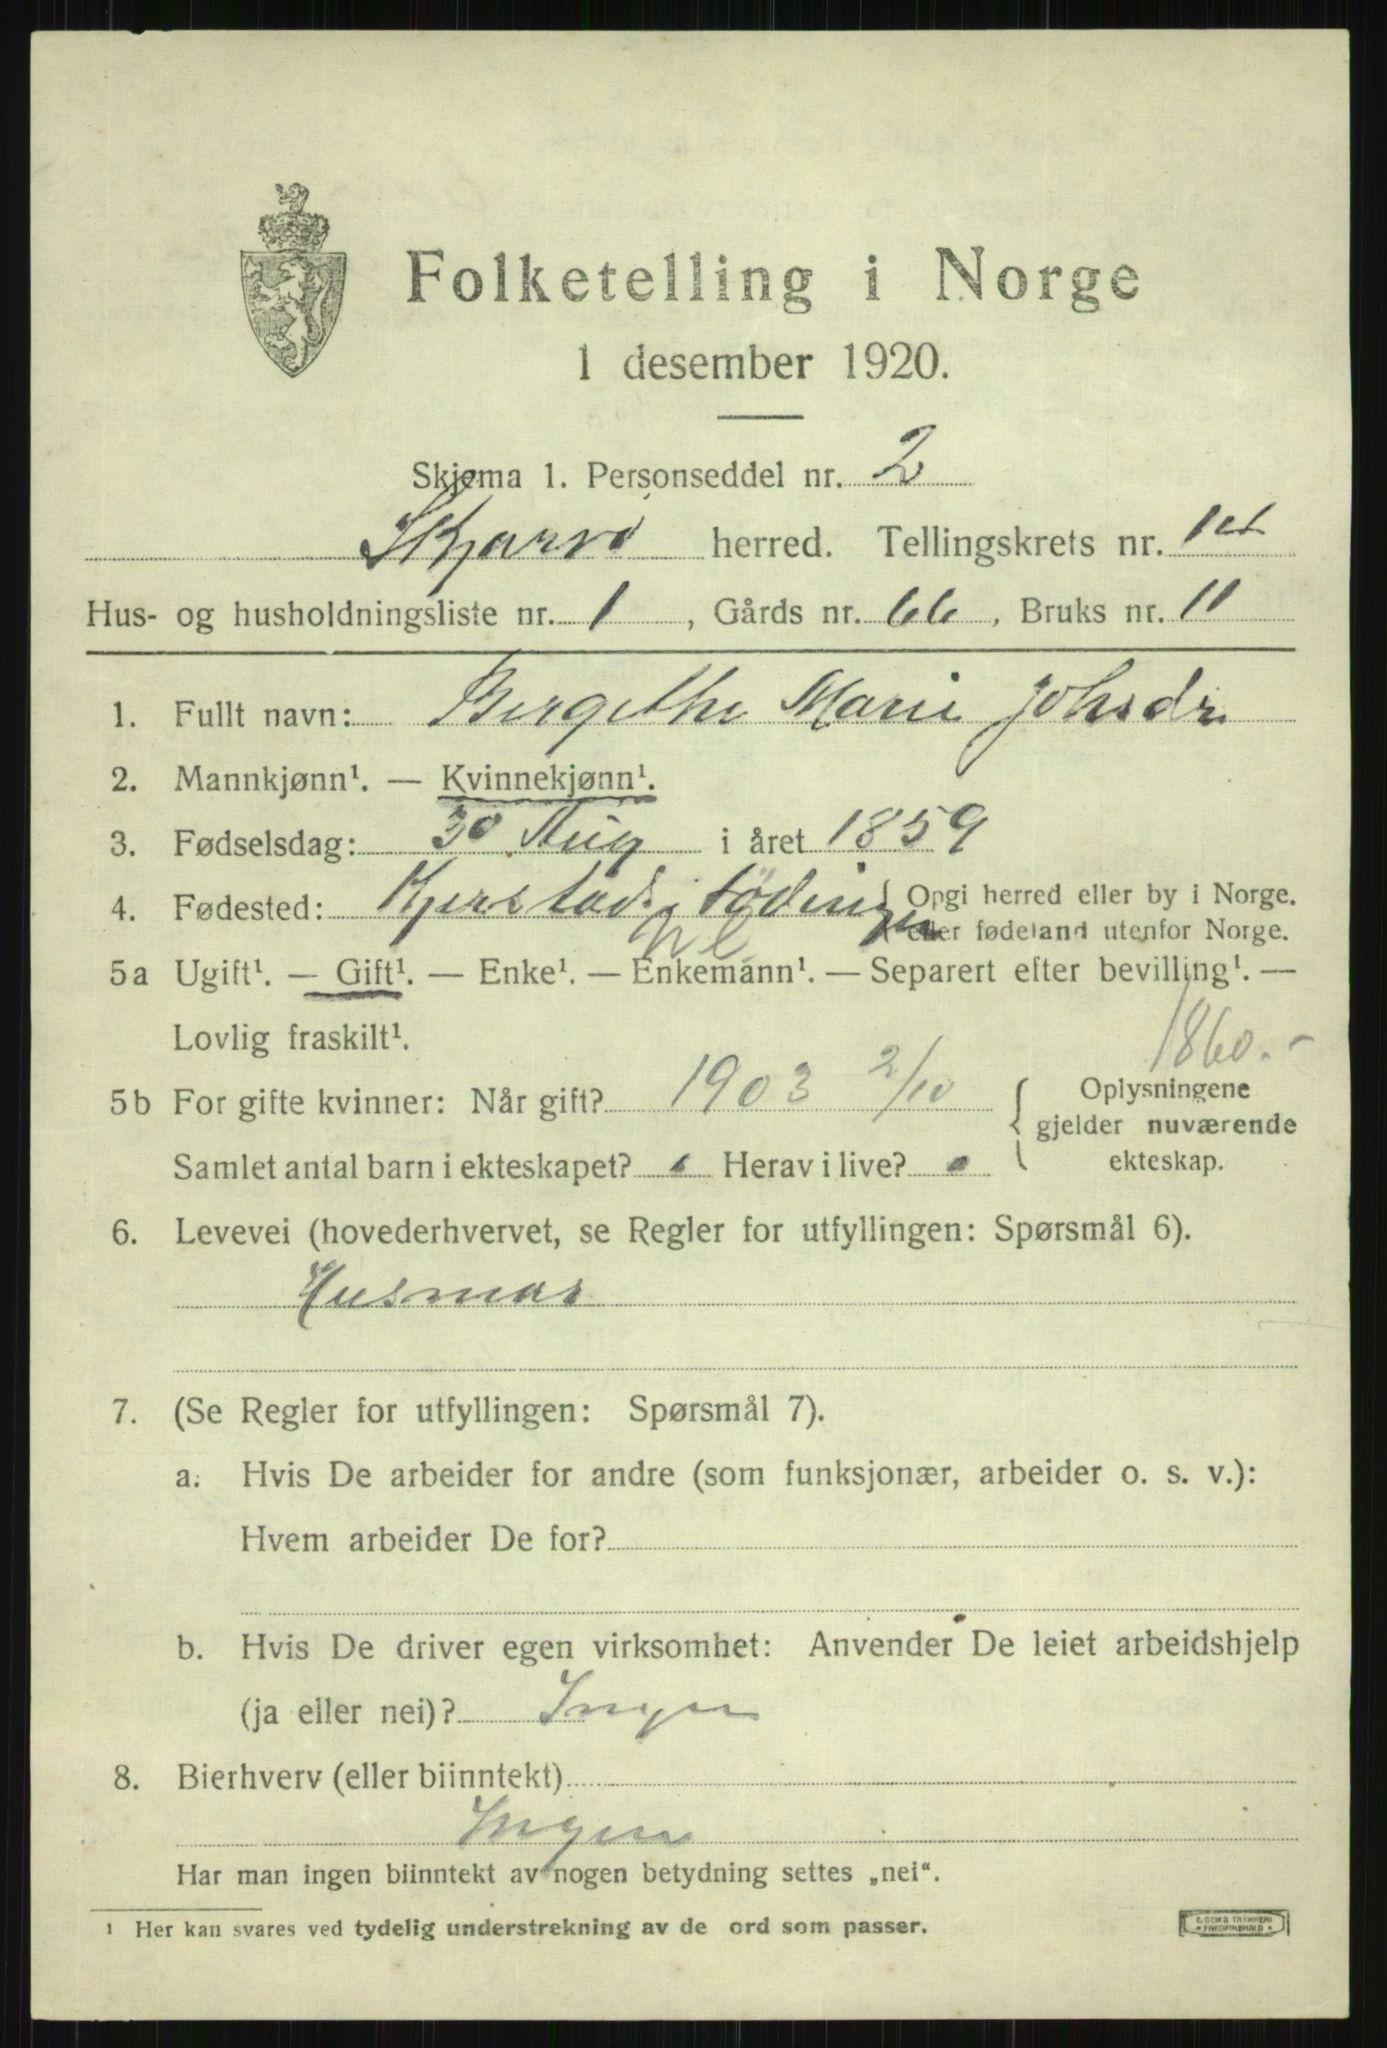 Folketelling i Norge
1 desember 1920.
Skjema 1. Personseddel nr. 2
Skjervø herred. Tellingskrets nr. 1ct
Hus- og husholdningsliste nr. 1, Gårds nr. 66, Bruks nr. 11
1. Fullt navn: Bergethe Marie Johsdr
2. Mannkjønn¹. — Kvinnekjønn¹.
3. Fødselsdag: 30 Aug i året 1859
4. Fødested: Kjerstad i Lödingen { Opgi herred eller by i Norge.
eller fødeland utenfor Norge.
5a Ugift¹. — Gift¹. — Enke¹. — Enkemann¹. — Separert efter bevilling¹. —
Lovlig fraskilt¹.
1860.-
5b For gifte kvinner: Når gift? 1903 2/10 { Oplysningene
gjelder nuværende
ekteskap.
Samlet antal barn i ekteskapet? Herav i live?
6. Levevei (hovederhvervet, se Regler for utfyllingen: Spørsmål 6).
Husmor
7. (Se Regler for utfyllingen: Spørsmål 7).
a. Hvis De arbeider for andre (som funksjonær, arbeider o. s. v.):
Hvem arbeider De for?
b. Hvis De driver egen virksomhet: Anvender De leiet arbeidshjelp
(ja eller nei)? Ingen
8. Bierhverv (eller biinntekt)
Ingen
Har man ingen biinntekt av nogen betydning settes „nei“.
¹ Her kan svares ved tydelig understrekning av de ord som passer.